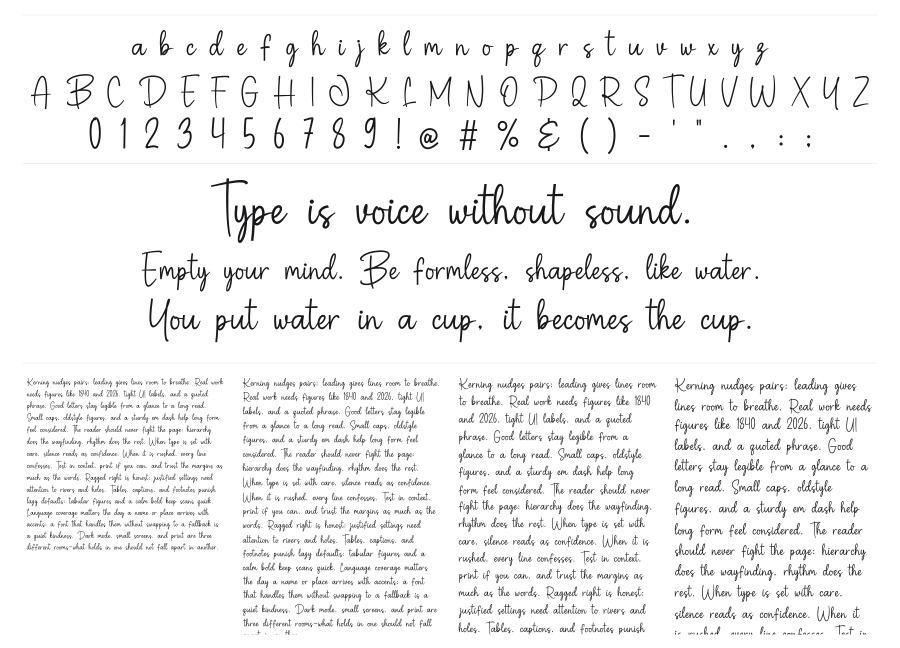 a b c d e f g h i j k l m n o p q r s t u v w x y z
A B C D E F G H I J K L M N O P Q R S T U V W X Y Z
0 1 2 3 4 5 6 7 8 9 ! @ # % & ( ) - ' " . , : ;
Type is voice without sound.
Empty your mind. Be formless, shapeless, like water.
You put water in a cup, it becomes the cup.
Kerning nudges pairs; leading gives lines room to breathe. Real work
needs figures like 1840 and 2026, tight UI labels, and a quoted
phrase. Good letters stay legible from a glance to a long read.
Small caps, oldstyle figures, and a sturdy em dash help long form
feel considered. The reader should never fight the page: hierarchy
does the wayfinding, rhythm does the rest. When type is set with
care, silence reads as confidence. When it is rushed, every line
confesses. Test in context, print if you can, and trust the margins as
much as the words. Ragged right is honest; justified settings need
attention to rivers and holes. Tables, captions, and footnotes punish
lazy defaults: tabular figures and a calm bold keep scans quick.
Language coverage matters the day a name or place arrives with
accents; a font that handles them without swapping to a fallback is
a quiet kindness. Dark mode, small screens, and print are three
different rooms—what holds in one should not fall apart in another.
Kerning nudges pairs; leading gives lines room to breathe.
Real work needs figures like 1840 and 2026, tight UI
labels, and a quoted phrase. Good letters stay legible
from a glance to a long read. Small caps, oldstyle
figures, and a sturdy em dash help long form feel
considered. The reader should never fight the page:
hierarchy does the wayfinding, rhythm does the rest.
When type is set with care, silence reads as confidence.
When it is rushed, every line confesses. Test in context,
print if you can, and trust the margins as much as the
words. Ragged right is honest; justified settings need
attention to rivers and holes. Tables, captions, and
footnotes punish lazy defaults: tabular figures and a
calm bold keep scans quick. Language coverage matters
the day a name or place arrives with accents; a font
that handles them without swapping to a fallback is a
quiet kindness. Dark mode, small screens, and print are
three different rooms—what holds in one should not fall
Kerning nudges pairs; leading gives lines room
to breathe. Real work needs figures like 1840
and 2026, tight UI labels, and a quoted
phrase. Good letters stay legible from a
glance to a long read. Small caps, oldstyle
figures, and a sturdy em dash help long
form feel considered. The reader should never
fight the page: hierarchy does the wayfinding,
rhythm does the rest. When type is set with
care, silence reads as confidence. When it is
rushed, every line confesses. Test in context,
print if you can, and trust the margins as
much as the words. Ragged right is honest;
justified settings need attention to rivers and
holes. Tables, captions, and footnotes punish
Kerning nudges pairs; leading gives
lines room to breathe. Real work needs
figures like 1840 and 2026, tight UI
labels, and a quoted phrase. Good
letters stay legible from a glance to a
long read. Small caps, oldstyle
figures, and a sturdy em dash help
long form feel considered. The reader
should never fight the page: hierarchy
does the wayfinding, rhythm does the
rest. When type is set with care,
silence reads as confidence. When it
is rushed, every line confesses. Test in